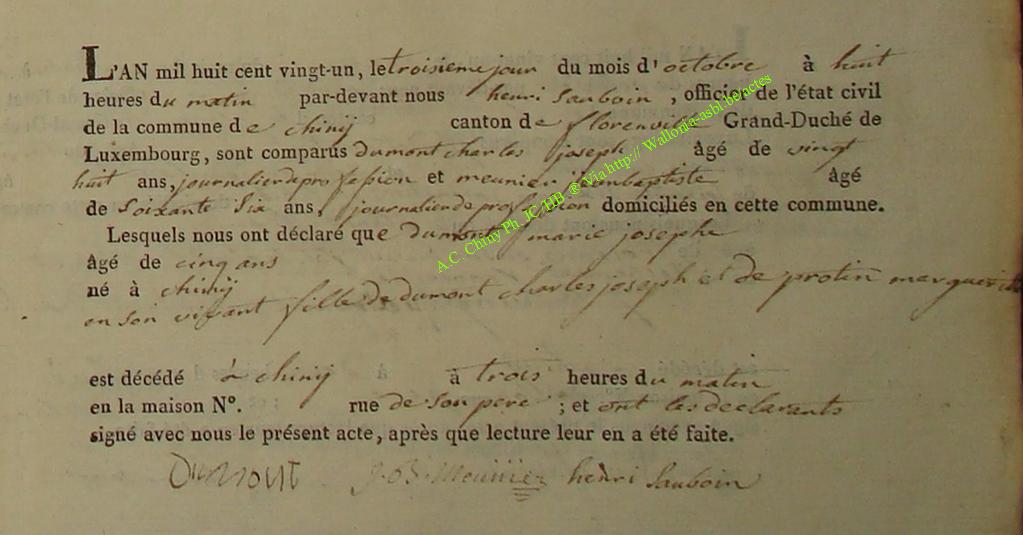 L'AN mil huit cent vingt-un, le troisieme jour du mois d'octobre à huit
heures du matin par-devant nous henri Sauboin, officier de l'état civil
de la commune de chinij canton de florenville Grand-Duché de
Luxembourg, sont comparus dumont charles joseph âgé de vingt
huit ans, journalier de profession et meunier jean baptiste âgé
de Soixante Six ans, journalier de profession domiciliés en cette commune.
Lesquels nous ont déclaré que dumont marie josephe
âgé de cinq ans
né à chinij
en son vivant fille de dumont charles joseph et de protin marguerite
est décédé à chinij à trois heures du matin
en la maison N°. rue de son pere ; et ont les declarants
signé avec nous le présent acte, après que lecture leur en a été faite.
Dumont J.B. Meunier henri Sauboin
A.C. Chiny Ph. JC HB ® Via http:// Wallonia-asbl.be/actes